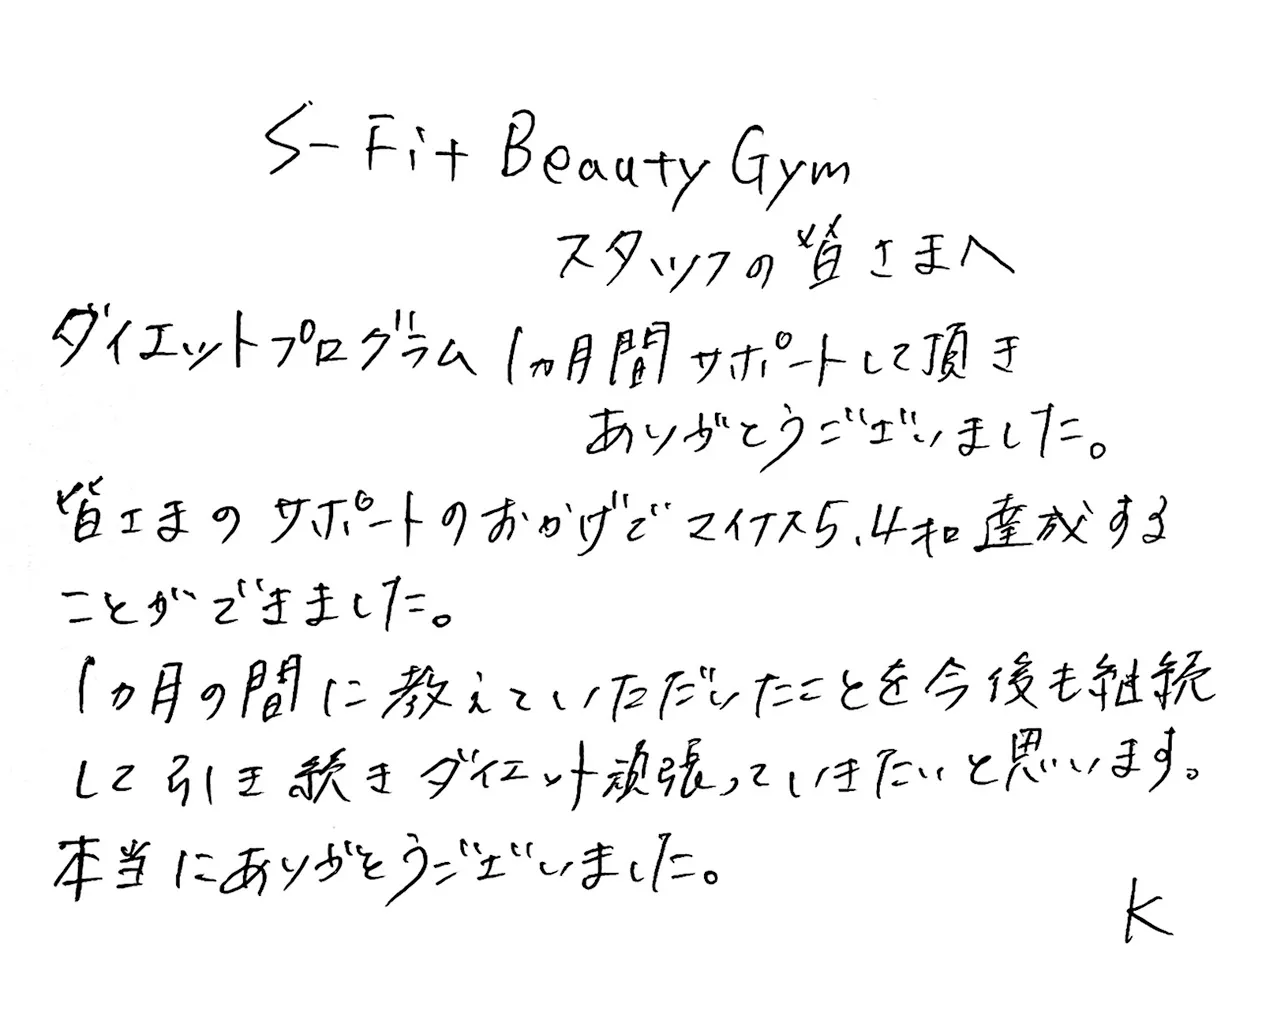 S-Fit Beauty Gym
スタッフの皆さまへ
ダイエットプログラム1ヵ月間サポートして頂き
ありがとうございました。
皆さまのサポートのおかげでマイナス5.4キロ達成する
ことができました。
1ヵ月の間に教えていただいたことを今後も継続
して引き続きダイエット頑張っていきたいと思います。
本当にありがとうございました。
K